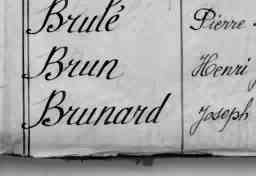 Brulé Pierre
Brun Henri
Brunard Joseph